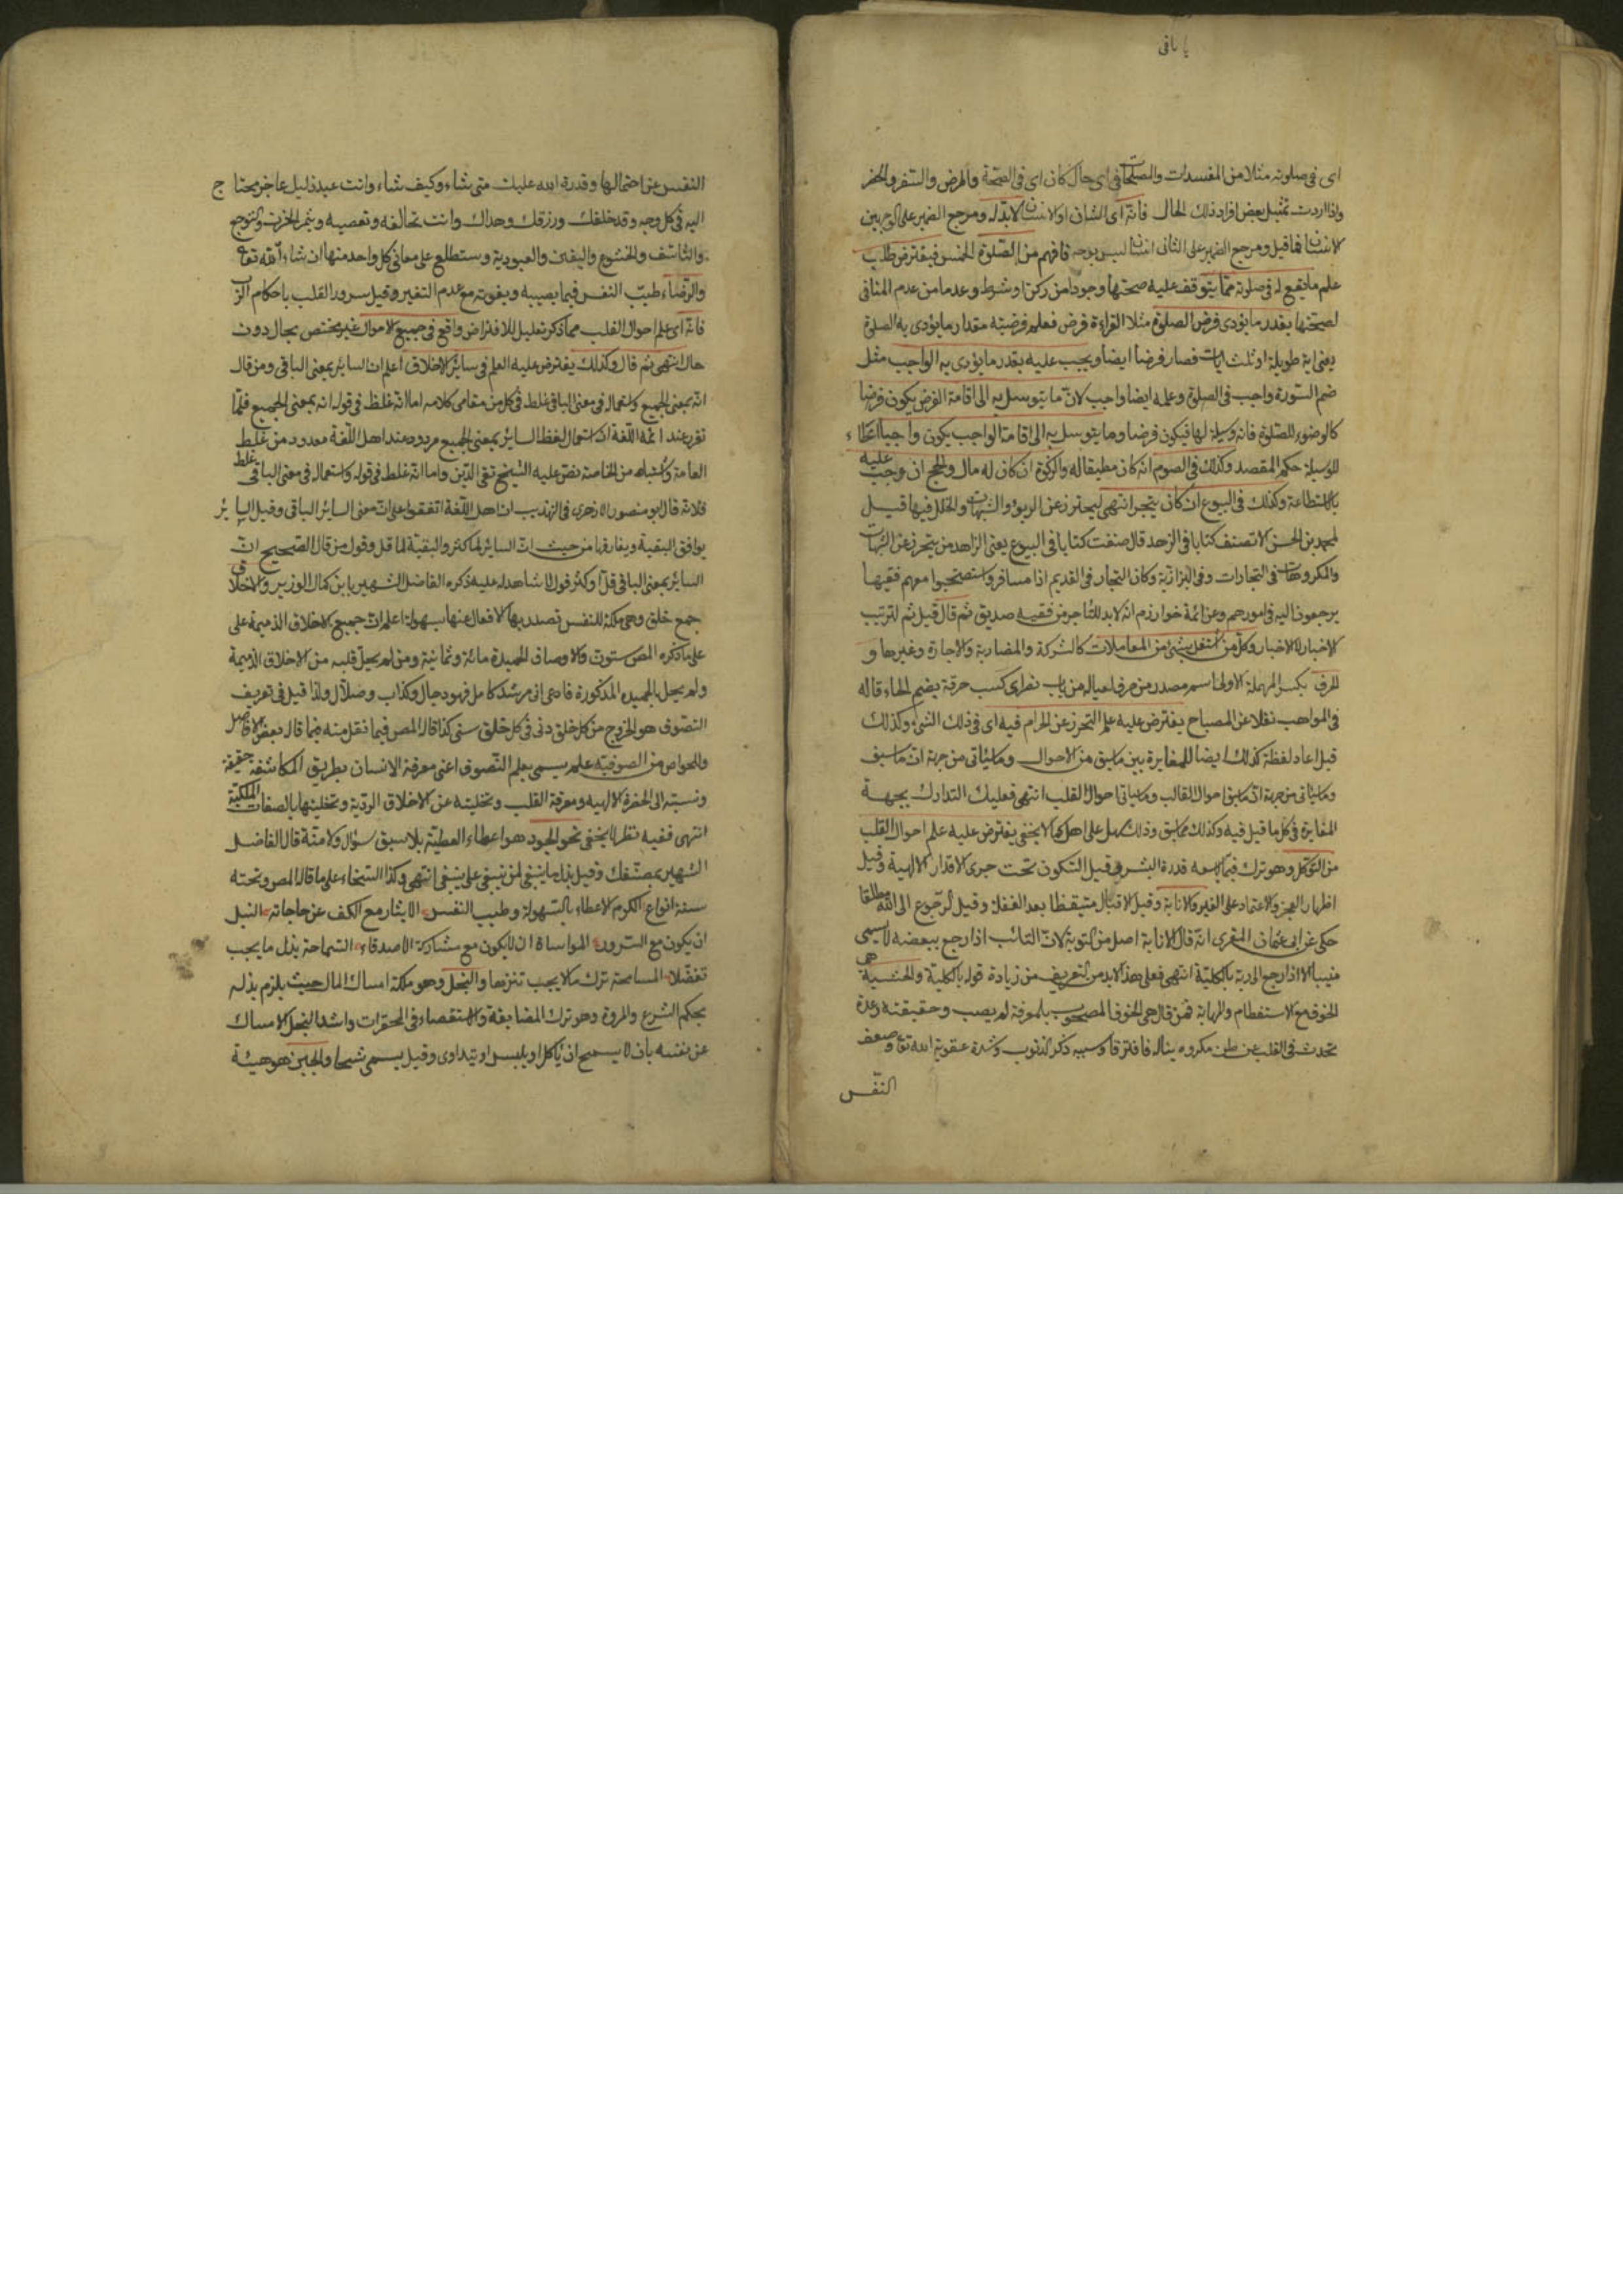 يا باقى
اى فى صلوته مثلا من المفسدات والمصلحات فى اى حال كان اى فى الصحة والمرض والسفر والحضر
واذا اردت تمثيل بعض افراد ذلك الحال فانه اى الشان او الانسان لا بد له ومرجع الضمير على الوجهين
الانسان فما قيل ومرجع الضمير على الثانى انسان ليس بوجه فافهم من الصلوة الخمس فيفترض طلب
علم ما يقع له فى صلوته مما يتوقف عليه صحتها وجودا من ركن او شرط وعدما من عدم المنافى
لصحتها بقدر ما يؤدى فرض الصلوة مثلا القراءة فرض فعلم فرضيته مقدار ما يؤدى به الصلوة
يعنى اية طويلة او ثلث ايات فصار فرضا ايضا ويجب عليه بقدر ما يؤدى به الواجب مثل
ضم السورة واجب فى الصلوة وعلمه ايضا واجب لان ما يتوسل به الى اقامة الفرض يكون فرضا
كالوضوء للصلوة فانه وسيلة لها فيكون فرضا وما يتوسل به الى اقامة الواجب يكون واجبا اعطاء
للوسيلة حكم المقصد وكذلك فى الصوم انه كان مطيقا له والزكوة ان كان له مال والحج ان وجب عليه
بالاستطاعة وكذلك فى البيوع ان كان يتجر انتهى ليحترز عن الربوا والشبهات والخلل فيها قيل
لمحمد بن الحسن الا تصنف كتابا فى الزهد قال صنفت كتابا فى البيوع يعنى الزاهد من يتحرز عن الشبهات
والمكروهات فى التجارات وفى البزازية وكان التجار فى القديم اذا سافروا استصحبوا معهم فقيها
يرجعون اليه فى امورهم وعن ائمة خوارزم انه لا بد للتاجر من فقيه صديق ثم قال قيل ثم لترتيب
الاخبار لا للاخبار وكل من اشتغل بشئ من المعاملات كالشركة والمضاربة والاجارة وغيرها و
الحرف بكسر المهملة الاولى اسم مصدر من حرف لعياله من باب نصر اى كسب حرفة بضم الحاء قاله
فى المواهب نقلا عن المصباح يفترض عليه علم التحرز عن الحرام فيه اى فى ذلك الشئ وكذلك
قيل اعاد لفظة كذلك ايضا للمغايرة بين ما سبق من الاحوال وما سياتى من جهة ان ما سبق
وما سياتى من جهة ان ما سبق احوال القالب وما سياتى احوال القلب انتهى فعليك التدارك بجهة
المغايرة فى كل ما قيل فيه وكذلك مما سبق وذلك سهل على اهله كما لا يخفى يفترض عليه علم احوال القلب
من التوكل وهو ترك فيما لا يسعه قدرة البشر وقيل السكون تحت جرى الاقدار الالهية وقيل
اظهار العجز والاعتماد على الغير والانابة وقيل الاقبال متيقظا بعد الغفلة وقيل الرجوع الى الله مطلقا
حكى عن ابى عثمان المغربى انه قال الانابة اصل من التوبة لان التائب اذا رجع ببعضه لا يسمى
منيبا الا اذا رجع الى ربه بالكلية انتهى فعلى هذا لا بد من التعريف من زيادة قوله بالكلية والخشية هى
الخوف مع الاستعظام والمهابة فمن قال هى الخوف المصحوب بالمعرفة لم يصب وحقيقته رعدة
تحدث فى القلب عن ظن مكروه يناله فافترقا وسببه ذكر الذنوب وشدة عقوبة الله تعا وضعف
النفس
النفس عن احتمالها وقدرة الله عليك متى شاء وكيف شاء وانت عبد ذليل عاجز محتاج
اليه فى كل وجه وقد خلقك ورزقك وهداك وانت تخالفه وتعصيه ويثمر الحزن والتوجه
والتأسف والخشوع واليقين والعبودية وستطلع على معانى كل واحد منها ان شاء الله تعا
والرضاء طيب النفس فيما يصيبه ويفوته مع عدم التغير وقيل سرور القلب باحكام الرب
فانه اى علم احوال القلب مما ذكر تعليل للافتراض واقع فى جميع الاموال غير مختص بحال دون
حال انتهى ثم قال وكذلك يفترض عليه العلم فى سائر الاخلاق اعلم ان السائر بمعنى الباقى ومن قال
انه بمعنى الجميع واستعماله فى معنى الباقى غلط فى كل من مقامى كلامه اما انه غلط فى قوله انه بمعنى الجميع فلما
تقرر عند ائمة اللغة ان استعمال لفظ السائر بمعنى الجميع مردود عند اهل اللغة معدود من غلط
العامة واشباهه من الخاصة نص عليه الشيخ تقى الدين واما انه غلط فى قوله واستعماله فى معنى الباقى غلط
فلانه قال ابو منصور الازهرى فى التهذيب ان اهل اللغة اتفقوا على ان معنى السائر الباقى وقيل السائر
يوافق البقية ويفارقها من حيث ان السائر لما كثر والبقية لما قل وقول من قال الصحيح ان
السائر بمعنى الباقى قل او كثر قول لا شاهد له عليه ذكره الفاضل الشهير بابن كمال الوزير والاخلاق
جمع خلق وهى ملكة للنفس تصدر بها الافعال عنها بسهولة اعلم ان جميع الاخلاق الذميمة على
على ما ذكره المص ستون والاوصاف الحميدة مائة وثمانية ومن لم يحل قلبه من الاخلاق الذميمة
ولم يحل بالحميده المذكورة فادعى انى مرشد كامل فهو دجال وكذاب وضلال ولذا قيل فى تعريف
التصوف هو الخروج من كل خلق دنى فى كل خلق سنى كذا قاله المص فيما نقل منه فيما قال بعض الافاضل
والخواص من الصوفية علم يسمى بعلم التصوف اعنى معرفة الانسان بطريق المكاشفة حقيقة
ونسبته الى الحضرة الالهيه ومعرفة القلب وتخليته عن الاخلاق الردية وتحليتها بالصفات الملكية
انتهى ففيه نظر لا يخفى نحو الجود هو اعطاء العطية بلا سبق سؤال ولا منة قال الفاضل
الشهير بمصنفك وقيل بذل ما ينبغى لمن ينبغى على ينبغى انتهى وكذا السخاء على ما قاله المص وتحته
ستة انواع الكرم الاعطاء بالسهولة وطيب النفس الايثار مع الكف عن حاجاته النبل
ان يكون مع السرور المواساة ان يكون مع مشاركة الاصدقاء السماحة بذل ما يجب
تفضلا المسامحة ترك ما لا يجب تنزها والبخل وهو ملكة امساك المال حيث يلزم بذله
بحكم الشرع والمروة وهو ترك المضايقة والاستقصاء فى المحقرات واشد البخل الامساك
عن نفسه بان لا يسمح ان ياكل او يلبس او يتداوى وقيل يسمى شحا والجبن هو هيئة